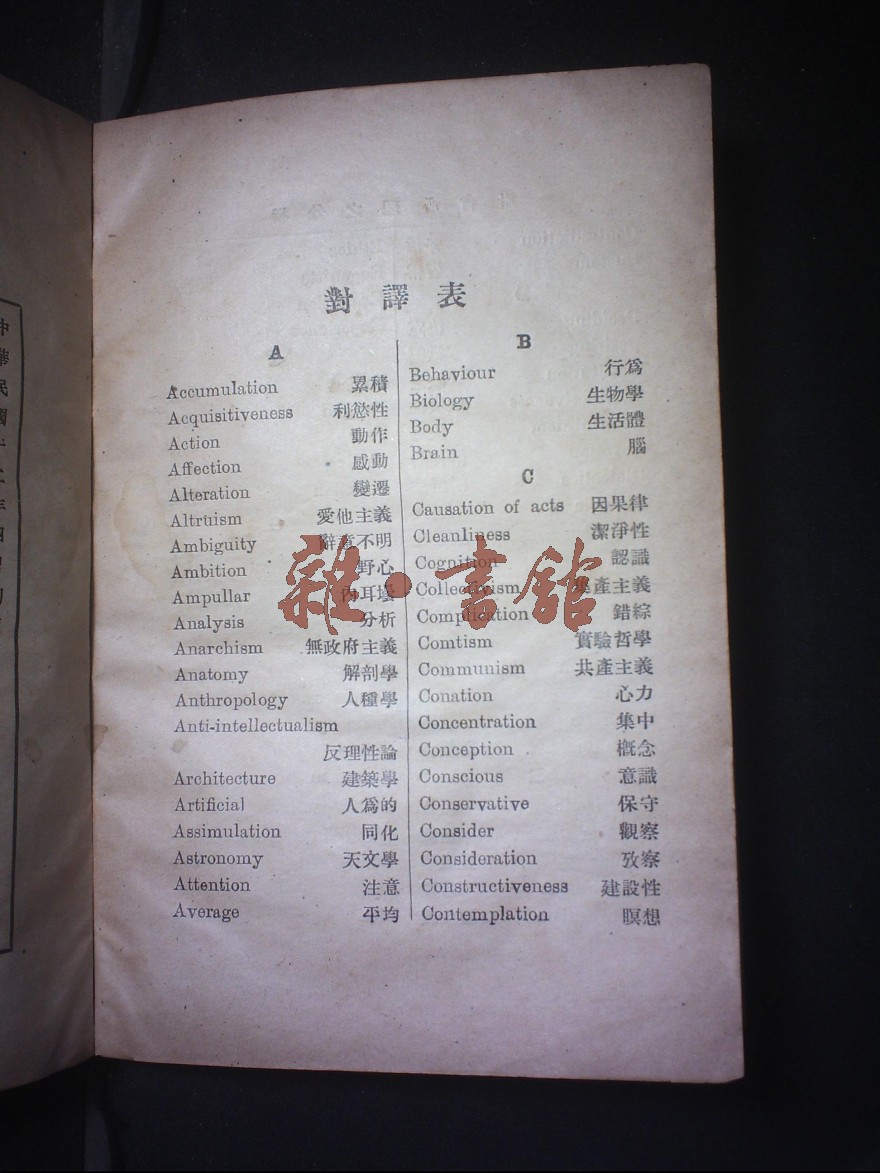 對譯表
A
Accumulation 累積
Acquisitiveness 利慾性
Action 動作
Affection 感動
Alteration 變遷
Altruism 愛他主義
Ambiguity 辭意不明
Ambition 野心
Ampullar 內耳壜
Analysis 分析
Anarchism 無政府主義
Anatomy 解剖學
Anthropology 人種學
Anti-intellectualism
反理性論
Architecture 建築學
Artificial 人爲的
Assimulation 同化
Astronomy 天文學
Attention 注意
Average 平均
B
Behaviour 行爲
Biology 生物學
Body 生活體
Brain 腦
C
Causation of acts 因果律
Cleanliness 潔淨性
Cognition 認識
Collectivism 集產主義
Complication 錯綜
Comtism 實驗哲學
Communism 共產主義
Conation 心力
Concentration 集中
Conception 概念
Conscious 意識
Conservative 保守
Consider 觀察
Consideration 攷察
Constructiveness 建設性
Contemplation 瞑想
雜·書館
中華民國十